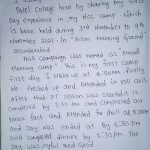 Told College here by sharing my first
day experience in my NCC Camp which
is been held during 3rd november to 9th
november 2021. In "Bison Training Ground"
@Secunderabad.
This Campaign was named as "Annual
Training Camp". This is my first camp
first day I woke up at 4:00AM firstly
we freshed up and Attended to roll call
After that PT Session was started it
completed by 7:15 AM and completed our
break fast and Attended for drill at 9:00AM
and Day was Ended at by 6:30PM
and completed dinner by 7:30 PM. The
Day was joyful and Good.